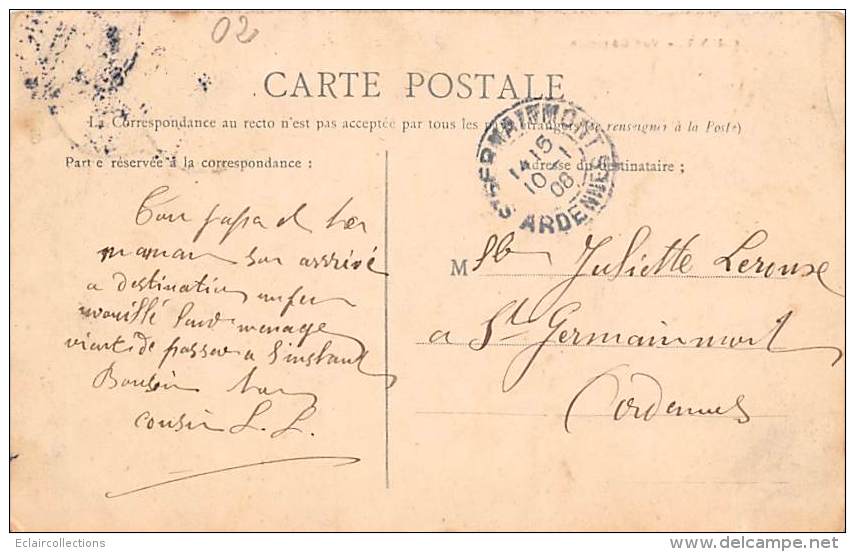 02
CARTE POSTALE
La Correspondance au recto n'est pas acceptée par tous les pays étrangers (se renseigner à la Poste)
Partie réservée à la correspondance :
Adresse du destinataire ;
ST GERMAINMONT
ARDENNES
14 15
10 -1
08
Ton papa et ta
maman son arrivé
a destination un peu
mouillé leur menage
vient de passer a l'instant
Bonsoir ton
cousin L. L.
M lle Juliette Leroux
a St Germainmont
Ardennes
Eclaircollections
www.delcampe.net